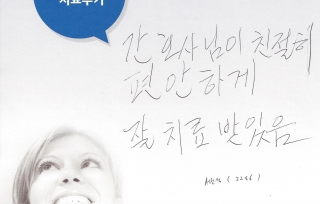 치료후기
간호사님이 친절히
편안하게
잘 치료 받았음
(2246)